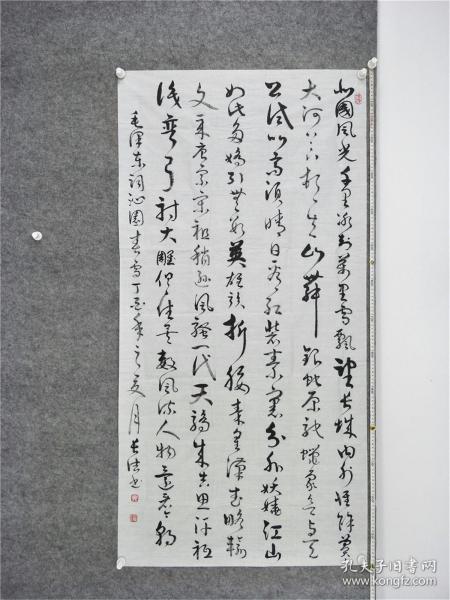 北國風光千里冰封萬里雪飄望長城內外惟餘莽
大河上下頓失山舞銀蛇原馳蠟象欲与天
公試比高須晴日看紅裝素裹分外妖嬈江山
如此多嬌引無數英雄競折腰秦皇漢武略輸
文采唐宗宋祖稍遜風騷一代天驕成吉思汗祇
識彎弓射大雕俱往矣數風流人物還看今朝
毛澤東詞沁園春雪丁酉年之夏月
孔夫子旧书网
kongfz.com